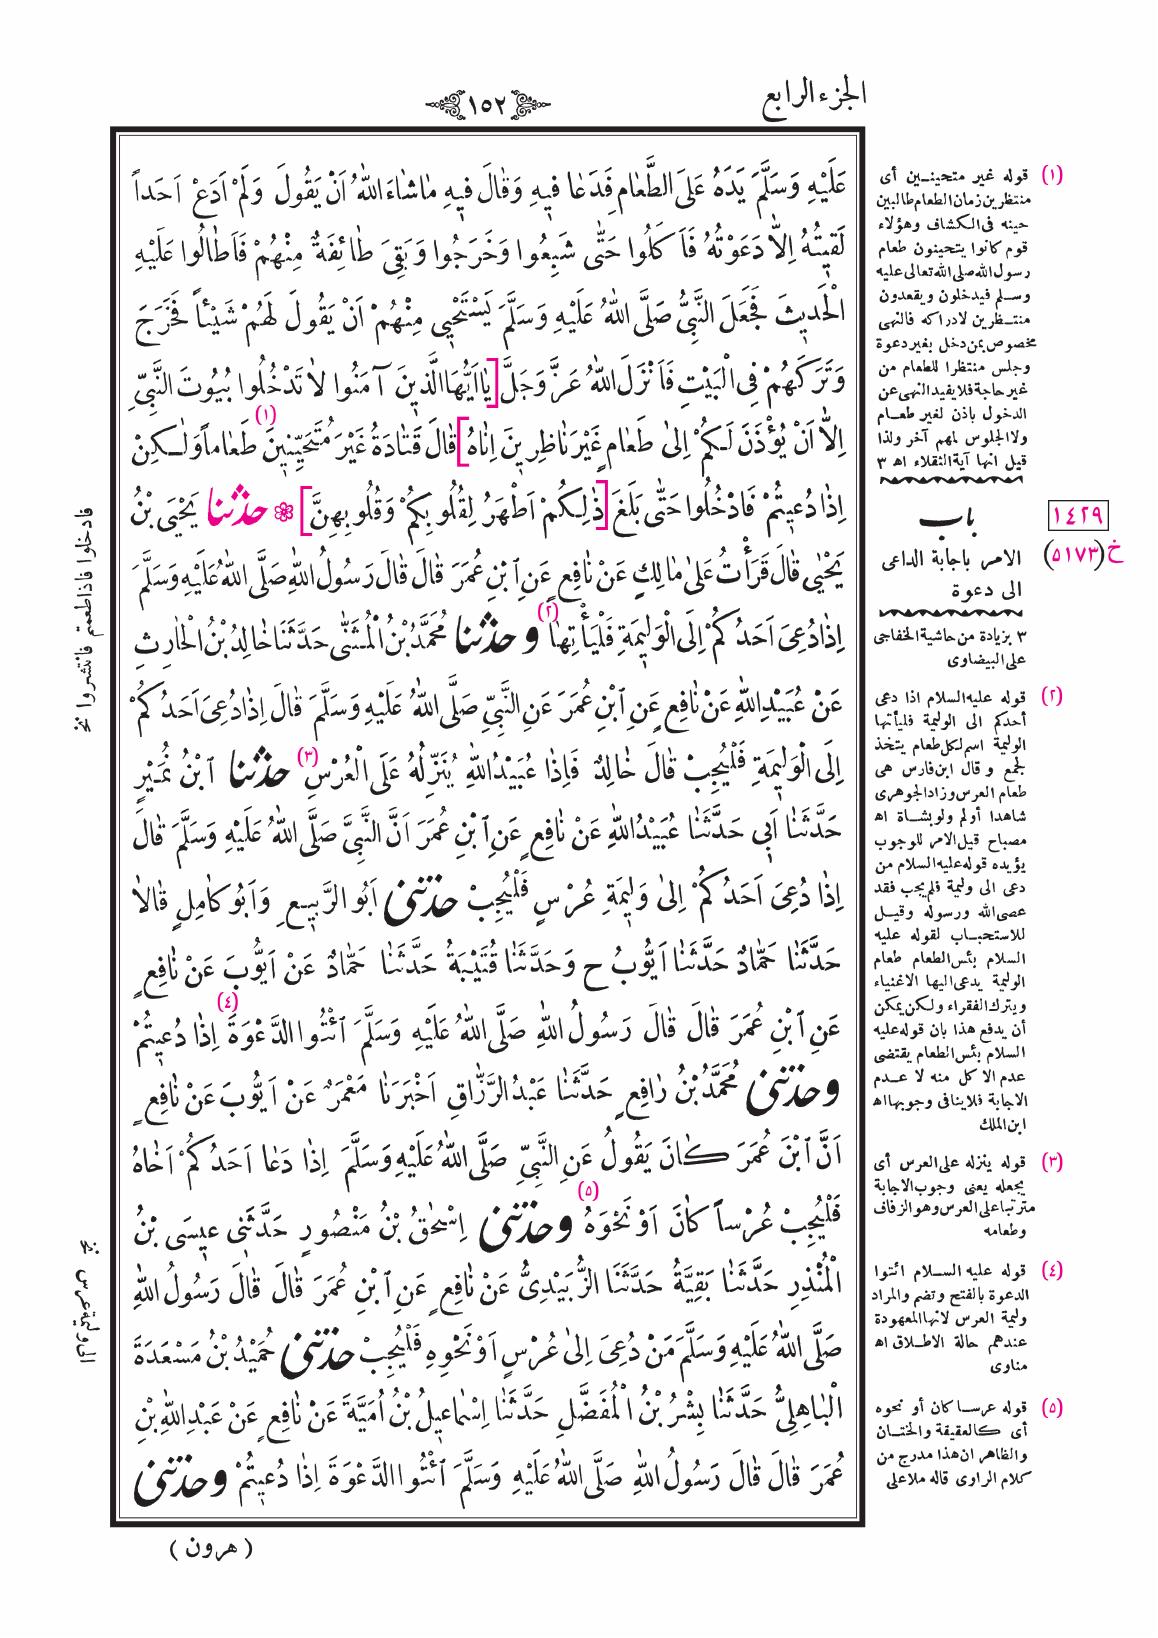 الجزء الرابع
١٥٢
عَلَيْهِ وَسَلَّمَ يَدَهُ عَلَى الطَّعَامِ فَدَعَا فِيهِ وَقَالَ فِيهِ مَا شَاءَ اللهُ اَنْ يَقُولَ وَلَمْ اَدَعْ اَحَداً
لَقِيتُهُ اِلاَّ دَعَوْتُهُ فَاَكَلُوا حَتَّى شَبِعُوا وَخَرَجُوا وَبَقِيَ طَائِفَةٌ مِنْهُمْ فَاَطَالُوا عَلَيْهِ
الْحَدِيثَ فَجَعَلَ النَّبِيُّ صَلَّى اللهُ عَلَيْهِ وَسَلَّمَ يَسْتَحْيِي مِنْهُمْ اَنْ يَقُولَ لَهُمْ شَيْئاً فَخَرَجَ
وَتَرَكَهُمْ فِي الْبَيْتِ فَاَنْزَلَ اللهُ عَزَّ وَجَلَّ [يَا اَيُّهَا الَّذِينَ آمَنُوا لاَ تَدْخُلُوا بُيُوتَ النَّبِيِّ
اِلاَّ اَنْ يُؤْذَنَ لَكُمْ اِلىٰ طَعَامٍ غَيْرَ نَاظِرِينَ اِنَاهُ] قَالَ قَتَادَةُ غَيْرَ مُتَحَيِّنِينَ (١) طَعَاماً وَلٰكِنْ
اِذَا دُعِيتُمْ فَادْخُلُوا حَتَّى بَلَغَ [ذٰلِكُمْ اَطْهَرُ لِقُلُوبِكُمْ وَقُلُوبِهِنَّ] ❁ حدثنا يَحْيَى بْنُ
يَحْيٰى قَالَ قَرَأْتُ عَلىٰ مَالِكٍ عَنْ نَافِعٍ عَنِ ابْنِ عُمَرَ قَالَ قَالَ رَسُولُ اللهِ صَلَّى اللهُ عَلَيْهِ وَسَلَّمَ
اِذَا دُعِيَ اَحَدُكُمْ اِلَى الْوَلِيمَةِ فَلْيَأْتِهَا (٢) و حدثنا مُحَمَّدُ بْنُ الْمُثَنَّى حَدَّثَنَا خَالِدُ بْنُ الْحَارِثِ
عَنْ عُبَيْدِ اللهِ عَنْ نَافِعٍ عَنِ ابْنِ عُمَرَ عَنِ النَّبِيِّ صَلَّى اللهُ عَلَيْهِ وَسَلَّمَ قَالَ اِذَا دُعِيَ اَحَدُكُمْ
اِلَى الْوَلِيمَةِ فَلْيُجِبْ قَالَ خَالِدٌ فَاِذَا عُبَيْدُ اللهِ يُنَزِّلُهُ عَلَى الْعُرْسِ (٣) حدثنا ابْنُ نُمَيْرٍ
حَدَّثَنَا اَبِي حَدَّثَنَا عُبَيْدُ اللهِ عَنْ نَافِعٍ عَنِ ابْنِ عُمَرَ اَنَّ النَّبِيَّ صَلَّى اللهُ عَلَيْهِ وَسَلَّمَ قَالَ
اِذَا دُعِيَ اَحَدُكُمْ اِلىٰ وَلِيمَةِ عُرْسٍ فَلْيُجِبْ حدثنى اَبُو الرَّبِيعِ وَاَبُو كَامِلٍ قَالاَ
حَدَّثَنَا حَمَّادٌ حَدَّثَنَا اَيُّوبُ ح وَحَدَّثَنَا قُتَيْبَةُ حَدَّثَنَا حَمَّادٌ عَنْ اَيُّوبَ عَنْ نَافِعٍ
عَنِ ابْنِ عُمَرَ قَالَ قَالَ رَسُولُ اللهِ صَلَّى اللهُ عَلَيْهِ وَسَلَّمَ اَئْتُوا الدَّعْوَةَ (٤) اِذَا دُعِيتُمْ
و حدثنى مُحَمَّدُ بْنُ رَافِعٍ حَدَّثَنَا عَبْدُ الرَّزَّاقِ اَخْبَرَنَا مَعْمَرٌ عَنْ اَيُّوبَ عَنْ نَافِعٍ
اَنَّ ابْنَ عُمَرَ كَانَ يَقُولُ عَنِ النَّبِيِّ صَلَّى اللهُ عَلَيْهِ وَسَلَّمَ اِذَا دَعَا اَحَدُكُمْ اَخَاهُ
فَلْيُجِبْ عُرْساً كَانَ اَوْ نَحْوَهُ (٥) و حدثنى اِسْحٰقُ بْنُ مَنْصُورٍ حَدَّثَنِي عِيسَى بْنُ
الْمُنْذِرِ حَدَّثَنَا بَقِيَّةُ حَدَّثَنَا الزُّبَيْدِيُّ عَنْ نَافِعٍ عَنِ ابْنِ عُمَرَ قَالَ قَالَ رَسُولُ اللهِ
صَلَّى اللهُ عَلَيْهِ وَسَلَّمَ مَنْ دُعِيَ اِلىٰ عُرْسٍ اَوْ نَحْوِهِ فَلْيُجِبْ حدثنى حُمَيْدُ بْنُ مَسْعَدَةَ
الْبَاهِلِيُّ حَدَّثَنَا بِشْرُ بْنُ الْمُفَضَّلِ حَدَّثَنَا اِسْمَاعِيلُ بْنُ اُمَيَّةَ عَنْ نَافِعٍ عَنْ عَبْدِ اللهِ بْنِ
عُمَرَ قَالَ قَالَ رَسُولُ اللهِ صَلَّى اللهُ عَلَيْهِ وَسَلَّمَ اَئْتُوا الدَّعْوَةَ اِذَا دُعِيتُمْ و حدثنى
( هرون )
(١) قوله غير متحينـين أى
منتظرين زمان الطعام طالبين
حينه فى الكشاف وهؤلاء
قوم كانوا يتحينون طعام
رسول الله صلى الله تعالى عليه
وسـلم فيدخلون ويقعدون
منتـظرين لادراكه فالنهى
مخصوص بمن دخل بغير دعوة
وجلس منتظرا للطعام من
غير حاجة فلا يفيد النهى عن
الدخول باذن لغير طعـام
ولا الجلوس لمهم آخر ولذا
قيل انها آية الثقلاء اھ ٣
١٤٢٩
خ (٥١٧٣)
باب
الامر باجابة الداعى
الى دعوة
٣ بزيادة من حاشية الخفاجى
على البيضاوى
(٢) قوله عليه السلام اذا دعى
أحدكم الى الوليمة فليأتها
الوليمة اسم لكل طعام يتخذ
لجمع و قال ابن فارس هى
طعام العرس وزاد الجوهرى
شاهدا أولم ولو بشـاة اھ
مصباح قيل الامر للوجوب
يؤيده قوله عليه السلام من
دعى الى وليمة فلم يجب فقد
عصى الله ورسوله وقيـل
للاستحبـاب لقوله عليه
السلام بئس الطعام طعام
الوليمة يدعى اليها الاغنياء
ويترك الفقراء ولكن يمكن
أن يدفع هذا بان قوله عليه
السلام بئس الطعام يقتضى
عدم الاكل منه لا عـدم
الاجابة فلا ينافى وجوبها اھ
ابن الملك
(٣) قوله ينزله على العرس أى
يجعله يعنى وجوب الاجابة
مترتبا على العرس وهو الزفاف
وطعامه
(٤) قوله عليه السـلام ائتوا
الدعوة بالفتح وتضم والمراد
وليمة العرس لانها المعهودة
عندهم حالة الاطـلاق اھ
مناوى
(٥) قوله عرسا كان أو نحوه
أى كالعقيقة والختـان
والظاهر ان هذا مدرج من
كلام الراوى قاله ملا على
فادخلوا فاذا طعمتم فانتشروا نخ
الى وليمة عرس نخ